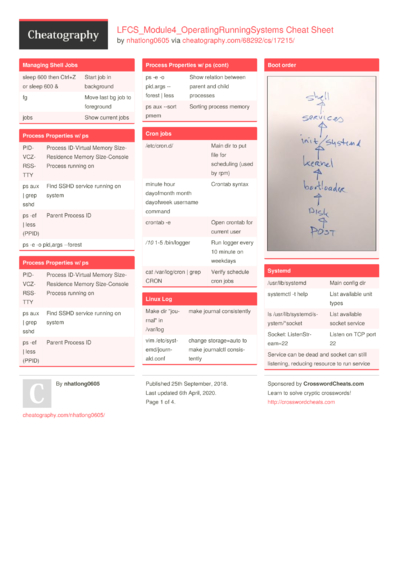 Cheatography
LFCS_Module4_OperatingRunningSystems Cheat Sheet
by nhatlong0605 via cheatography.com/68292/cs/17215/
Managing Shell Jobs
sleep 600 then Ctrl+Z
or sleep 600 &
Start job in
background
fg
Move last bg job to
foreground
jobs
Show current jobs
Process Properties w/ ps
PID-
VCZ-
RSS-
TTY
Process ID-Virtual Memory Size-
Residence Memory Size-Console
Process running on
ps aux
| grep
sshd
Find SSHD service running on
system
ps -ef
| less
(PPID)
Parent Process ID
ps -e -o pid,args --forest
Process Properties w/ ps
PID-
VCZ-
RSS-
TTY
Process ID-Virtual Memory Size-
Residence Memory Size-Console
Process running on
ps aux
| grep
sshd
Find SSHD service running on
system
ps -ef
| less
(PPID)
Parent Process ID
Process Properties w/ ps (cont)
ps -e -o
pid,args --
forest | less
Show relation between
parent and child
processes
ps aux --sort
pmem
Sorting process memory
Cron jobs
/etc/cron.d/
Main dir to put
file for
scheduling (used
by rpm)
minute hour
dayofmonth month
dayofweek username
command
Crontab syntax
crontab -e
Open crontab for
current user
/10 1-5 /bin/logger
Run logger every
10 minute on
weekdays
cat /var/log/cron | grep
CRON
Verify schedule
cron jobs
Linux Log
Make dir "jou-
rnal" in
/var/log
make journal consistently
vim /etc/syst-
emd/journ-
ald.conf
change storage=auto to
make journalctl consis-
tently
Boot order
shell
services
init/systemd
kernel
bootloader
Disk
POST
Systemd
/usr/lib/systemd
Main config dir
systemctl -t help
List available unit
types
ls /usr/lib/systemd/s-
ystem/*socket
List available
socket service
Socket: ListenStr-
eam=22
Listen on TCP port
22
Service can be dead and socket can still
listening, reducing resource to run service
C
By nhatlong0605
cheatography.com/nhatlong0605/
Published 25th September, 2018.
Last updated 6th April, 2020.
Page 1 of 4.
Sponsored by CrosswordCheats.com
Learn to solve cryptic crosswords!
http://crosswordcheats.com